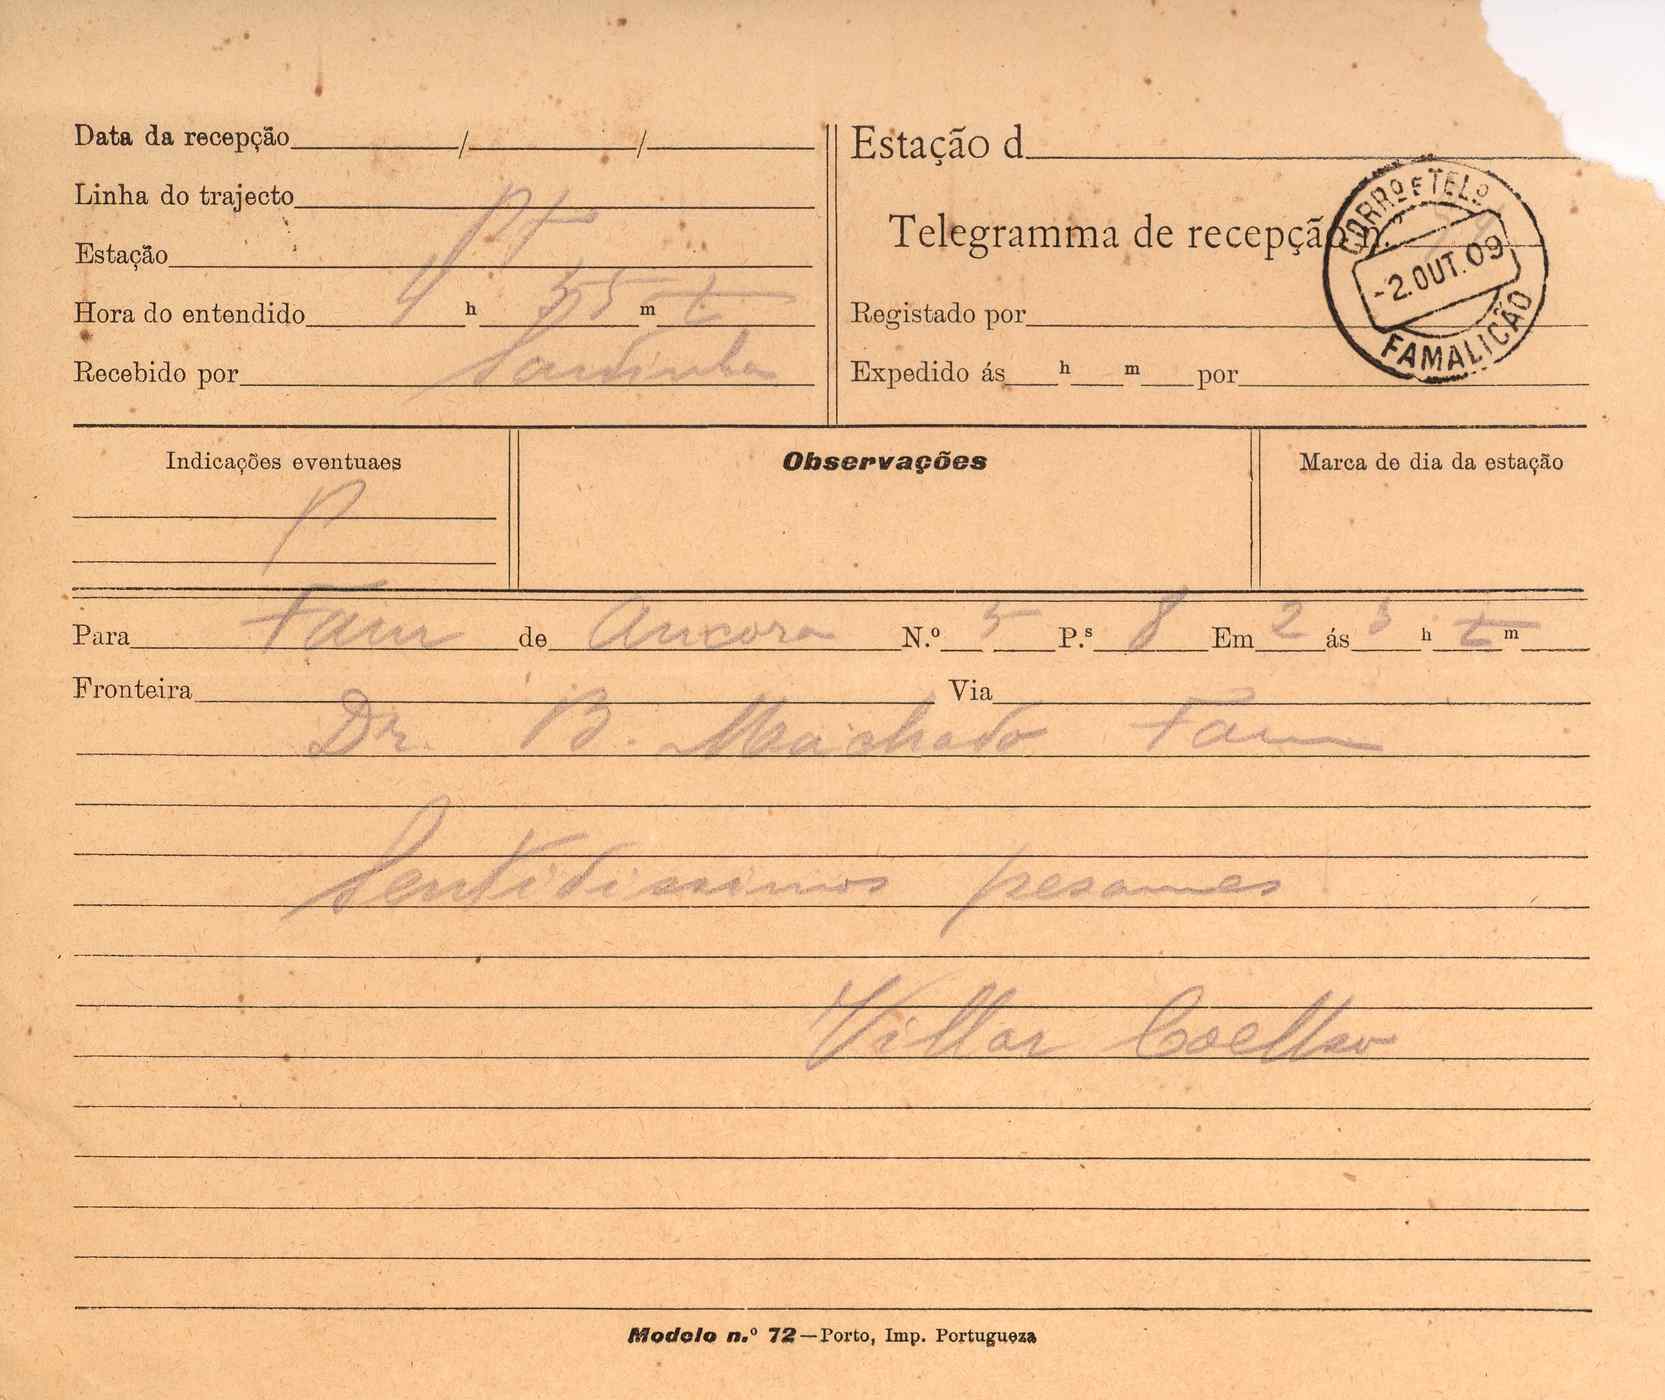 Data da recepção / /
Linha do trajecto
Estação Pt
Hora do entendido 4 h 55 m t
Recebido por
Estação d
Telegramma de recepção n.º
CORRO E TELO
-2.OUT.09
FAMALICÃO
Registado por
Expedido ás h m por
Indicações eventuaes
P
Observações
Marca de dia da estação
Para Fam de Ancora N.º 5 P.s 8 Em 2 ás 3 h t m
Fronteira Via
Dr. B. Machado Fam
Sentidissimos pesames
Villar Coelho
Modelo n.º 72—Porto, Imp. Portugueza